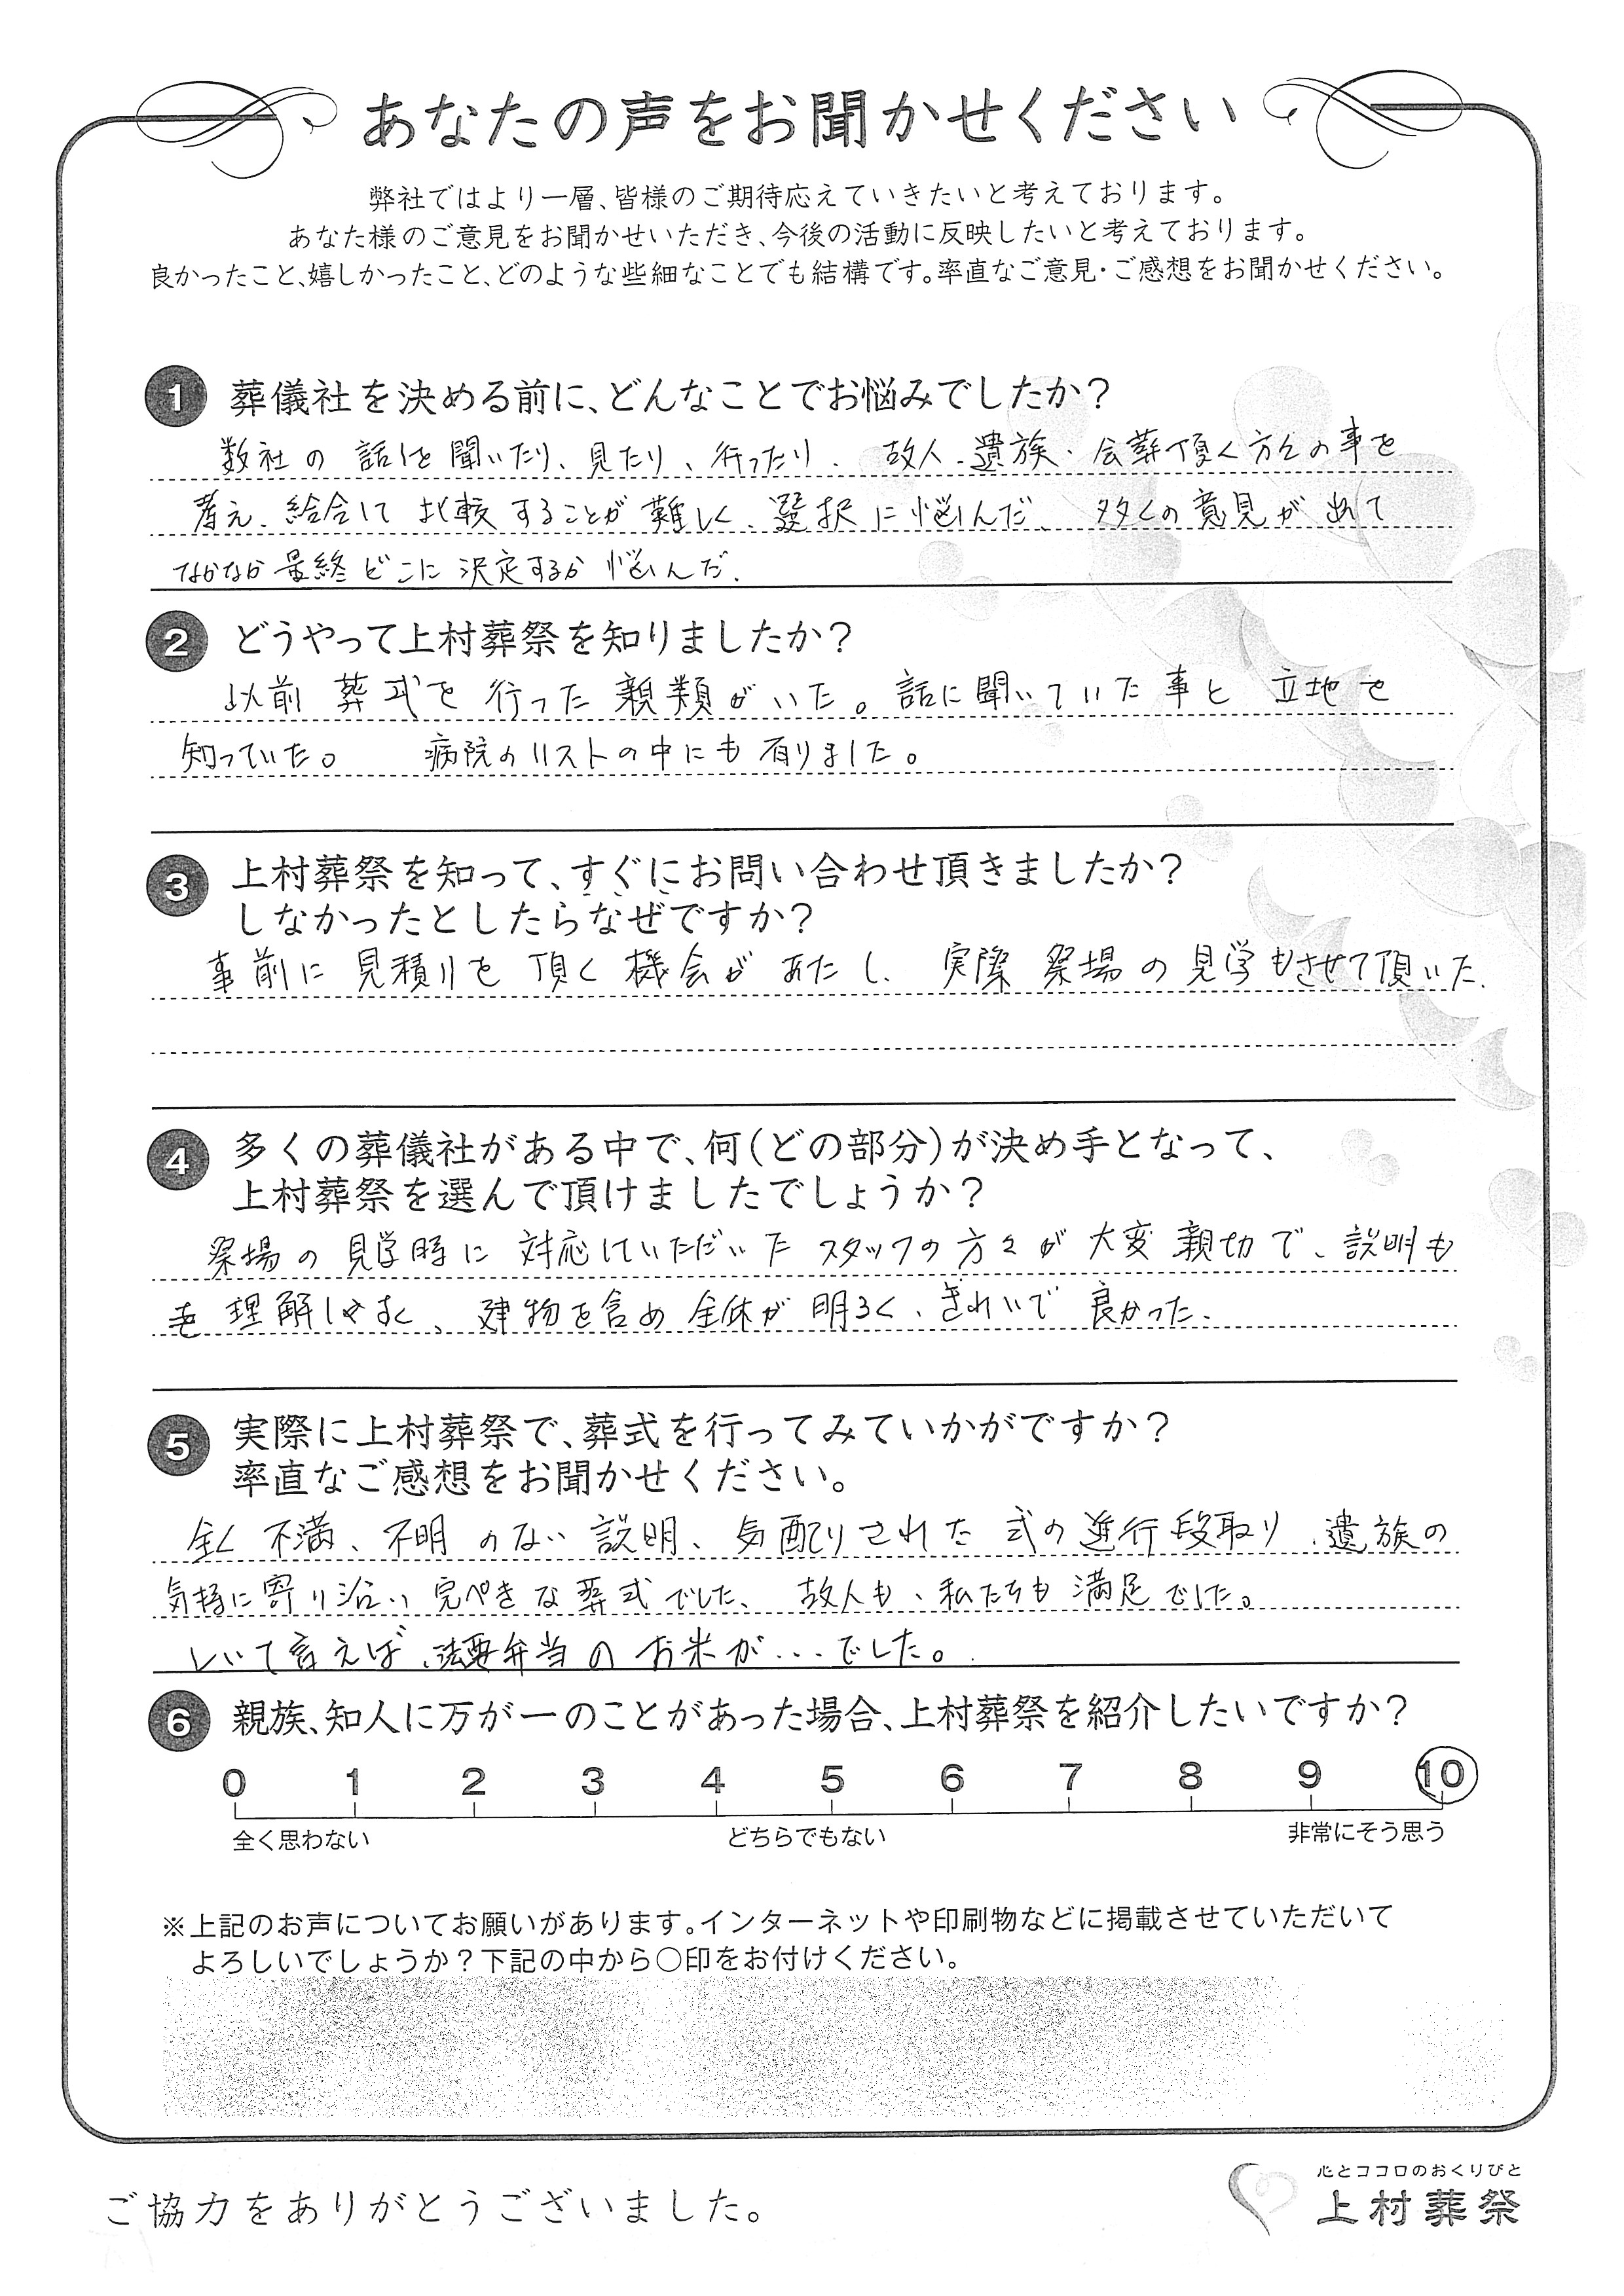 あなたの声をお聞かせください
弊社ではより一層、皆様のご期待応えていきたいと考えております。
あなた様のご意見をお聞かせいただき、今後の活動に反映したいと考えております。
良かったこと、嬉しかったこと、どのような些細なことでも結構です。率直なご意見・ご感想をお聞かせください。
1 葬儀社を決める前に、どんなことでお悩みでしたか?
数社の話しを聞いたり、見たり、行ったり、故人、遺族、会葬頂く方々の事を
考え、総合して比較することが難しく、選択に悩んだ、多くの意見が出て
なかなか最終どこに決定するか悩んだ、
2 どうやって上村葬祭を知りましたか?
以前葬式を行った親類がいた。話に聞いていた事と立地を
知っていた。 病院のリストの中にも有りました。
3 上村葬祭を知って、すぐにお問い合わせ頂きましたか?
しなかったとしたらなぜですか?
事前に見積りを頂く機会があたし、実際祭場の見学もさせて頂いた、
4 多くの葬儀社がある中で、何(どの部分)が決め手となって、
上村葬祭を選んで頂けましたでしょうか?
祭場の見学時に対応していただいたスタッフの方々が大変親切で、説明も
理解しやすく、建物を含め全体が明るく、きれいで良かった、
5 実際に上村葬祭で、葬式を行ってみていかがですか?
率直なご感想をお聞かせください。
全く不満、不明のない説明、気配りされた式の進行段取り、遺族の
気持に寄り沿い完ぺきな葬式でした、故人も、私たちも満足でした。
しいて言えば、法要弁当のお米が...でした。
6 親族、知人に万が一のことがあった場合、上村葬祭を紹介したいですか?
0 1 2 3 4 5 6 7 8 9 10
全く思わない どちらでもない 非常にそう思う
※上記のお声についてお願いがあります。インターネットや印刷物などに掲載させていただいて
よろしいでしょうか?下記の中から〇印をお付けください。
ご協力をありがとうございました。
心とココロのおくりびと
上村葬祭